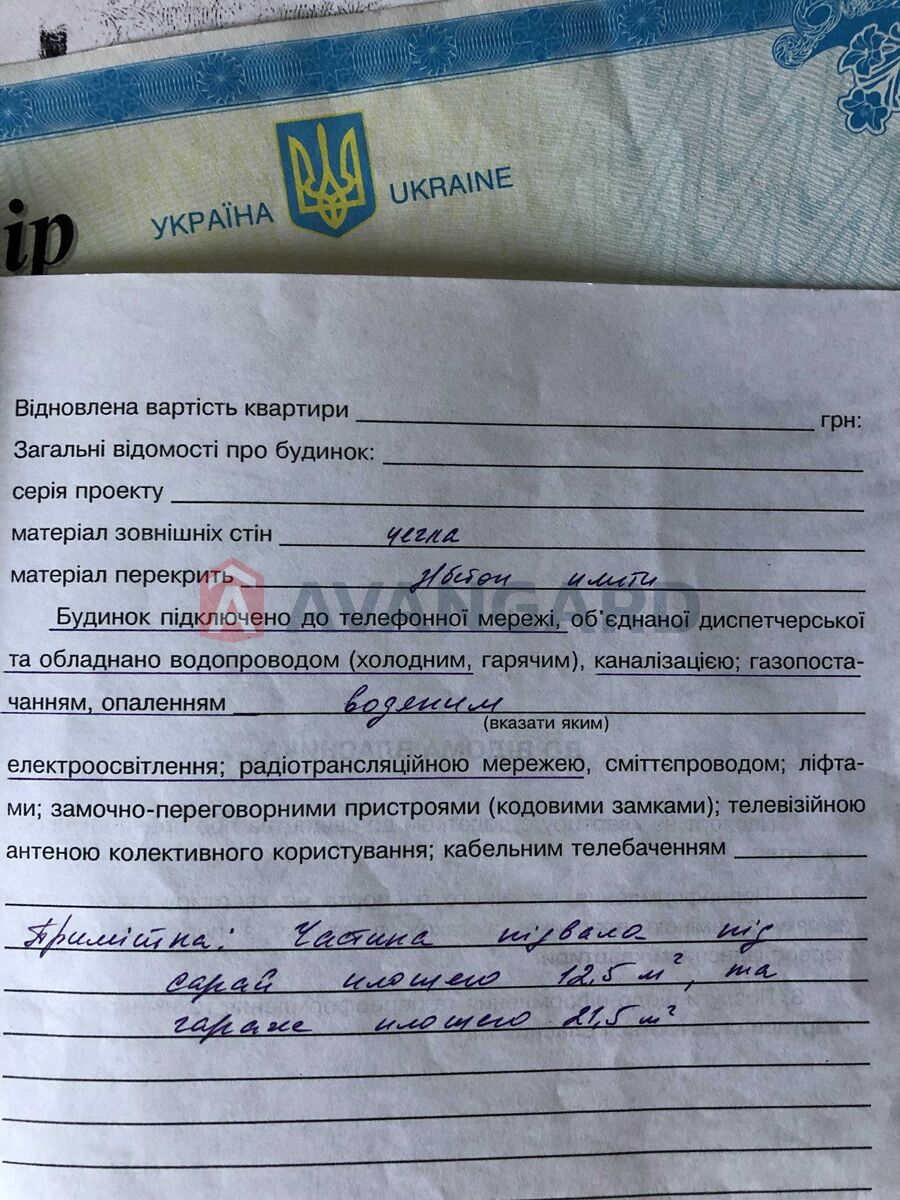 УКРАЇНА UKRAINE
ір
Відновлена вартість квартири грн:
Загальні відомості про будинок:
серія проекту
матеріал зовнішніх стін цегла
матеріал перекрить з/бетон плити
AVANGARD
Будинок підключено до телефонної мережі, об'єднаної диспетчерської
та обладнано водопроводом (холодним, гарячим), каналізацією; газопоста-
чанням, опаленням водяним
(вказати яким)
електроосвітлення; радіотрансляційною мережею, сміттєпроводом; ліфта-
ми; замочно-переговорними пристроями (кодовими замками); телевізійною
антеною колективного користування; кабельним телебаченням
Примітка: Частина підвала під
сарай площею 12,5 м², та
гараж площею 21,5 м²